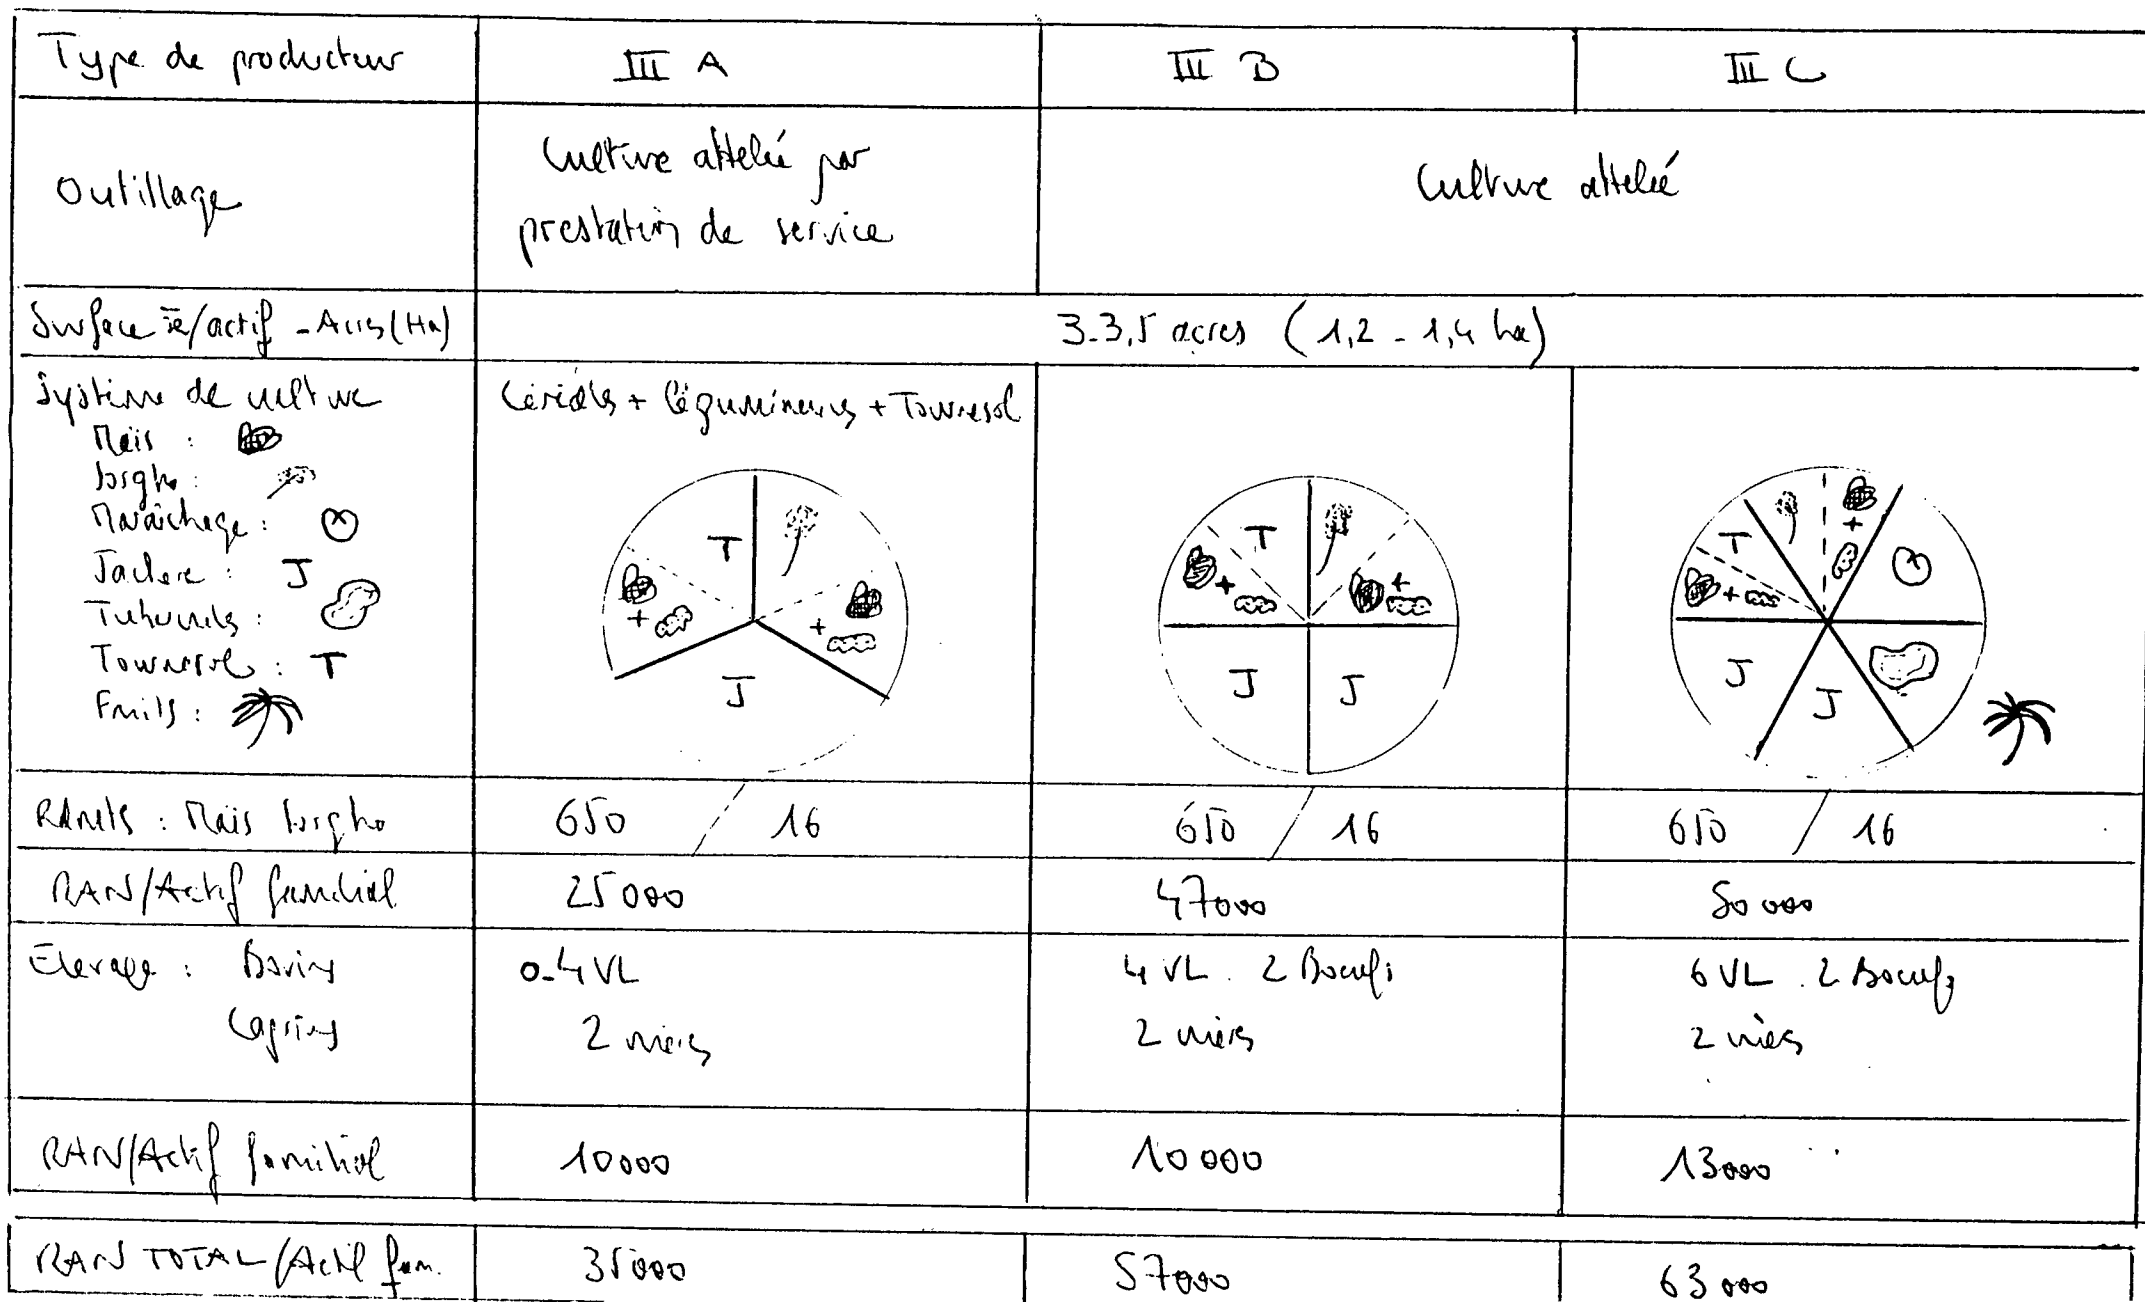 Type de producteur III A III B III C
Outillage
Culture attelée par
prestation de service
Culture attelée
Surface /actif - Acres (Ha) 3-3,5 acres (1,2 - 1,4 ha)
Système de culture
Maïs :
Sorgho :
Maraîchage :
Jachère : J
Tubercules :
Tournesol : T
Fruits :
Céréales + légumineuses + Tournesol
T
+
+
J
T
+
+
J J
T
+
+
J
J
Rdmts : Maïs sorgho 650 / 16 650 / 16 650 / 16
RAN/Actif familial 25000 47000 50 000
Elevage : Bovins 0-4 VL 4 VL . 2 Boeufs 6 VL . 2 Boeufs
Caprins 2 mères 2 mères 2 mères
RAN/Actif familial 10000 10 000 13000
RAN TOTAL/Actif fam. 35000 57000 63 000